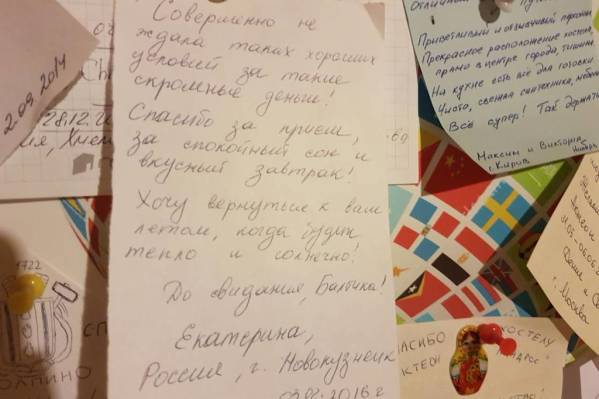 Совершенно не
ждала таких хороших
условий за такие
скромные деньги!
Спасибо за приём,
за спокойный сон и
вкусный завтрак!
Хочу вернуться к вам
летом, когда будет
тепло и солнечно!
До свидания, Балтика!
Екатерина,
Россия, г. Новокузнецк
03.02.2016 г
2.09.2014
28.12.20
Приветливый и отзывчивый персонал
Прекрасное расположение хостела,
прямо в центре города, тишина.
На кухне есть всё для готовки
Чисто, свежая сантехника, мебель
Всё супер! Так держать
Максим и Виктория
г. Киров
Ноябрь
г. Москва
1722
КОЛПИНО
СПАСИБО
ХОСТЕЛУ